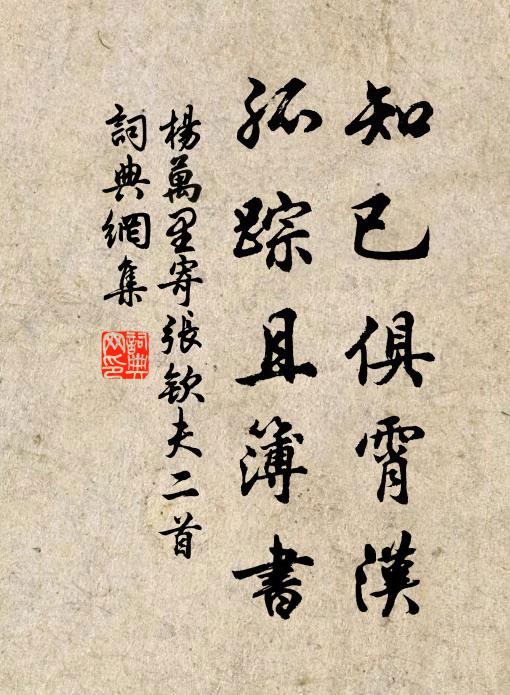 知己俱霄漢
孤踪且簿書
楊萬里寄張欽夫二首
詞典網集
詞典
网印